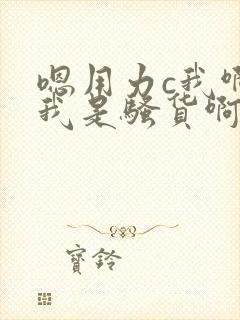 嗯用力c我啊
我是骚货啊
寶鈴